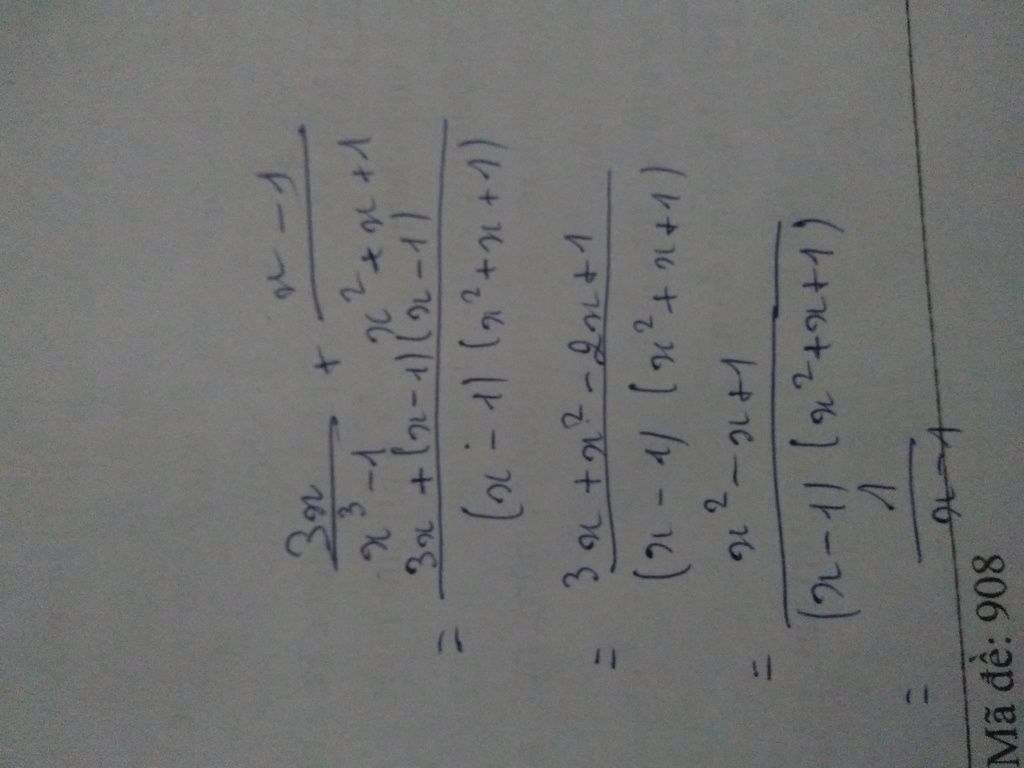 3x/(x³-1) + (x-1)/(x²+x+1)
= (3x+(x-1)(x-1))/((x-1)(x²+x+1))
= (3x+x²-2x+1)/((x-1)(x²+x+1))
= (x²-x+1)/((x-1)(x²+x+1))
= 1/(x-1)
Mã đề: 908